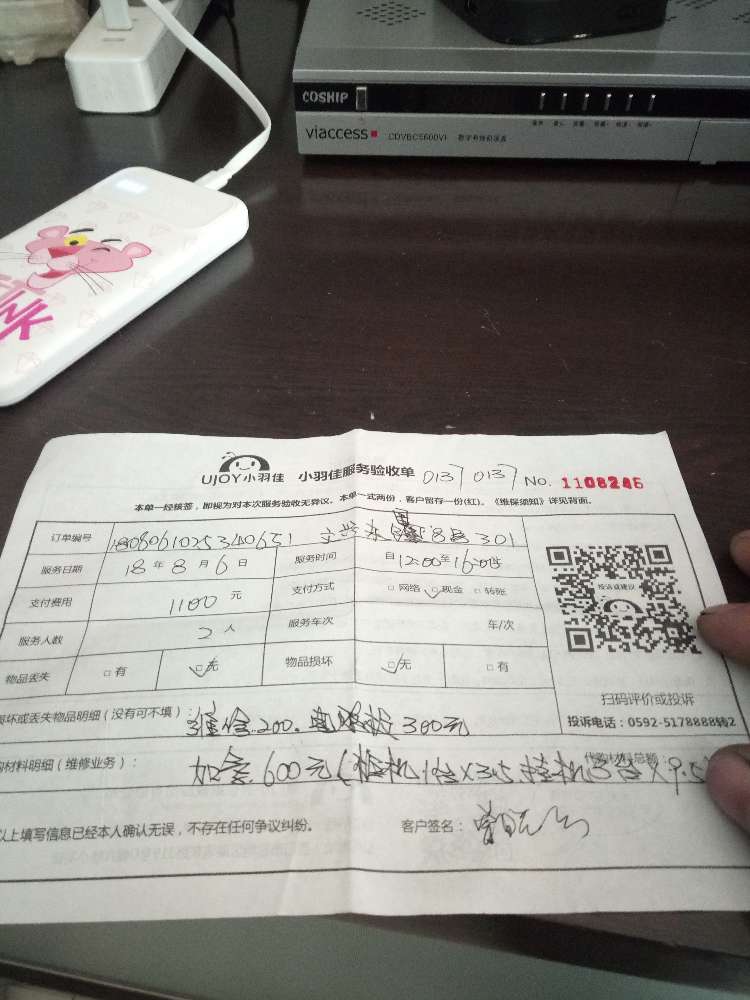 COSHIP
viaccess
CDVBC5600VI 数字有线机顶盒
INK
UJOY小羽佳 小羽佳服务验收单 0137 0137 No. 1108246
本单一经核签，即视为对本次服务验收无异议。本单一式两份，客户留存一份(红)。《维保须知》详见背面。
订单编号 1808061025340651 301
服务日期 18 年 8 月 6 日 服务时间 自 12:00 至 16:00
支付费用 1100 元 支付方式 □网络 □现金 □转账
服务人数 2 人 服务车次 车/次
物品丢失 □有 □无 物品损坏 □无 □有
投诉或建议
扫码评价或投诉
投诉电话：0592-5178888转2
损坏或丢失物品明细（没有可不填）： 维修 200. 电源板 300元
购材料明细（维修业务）： 加氨 600元 (柜机 1台 X 3.5. 挂机 3台 X 9.5)
代购材料总额：
以上填写信息已经本人确认无误，不存在任何争议纠纷。 客户签名：